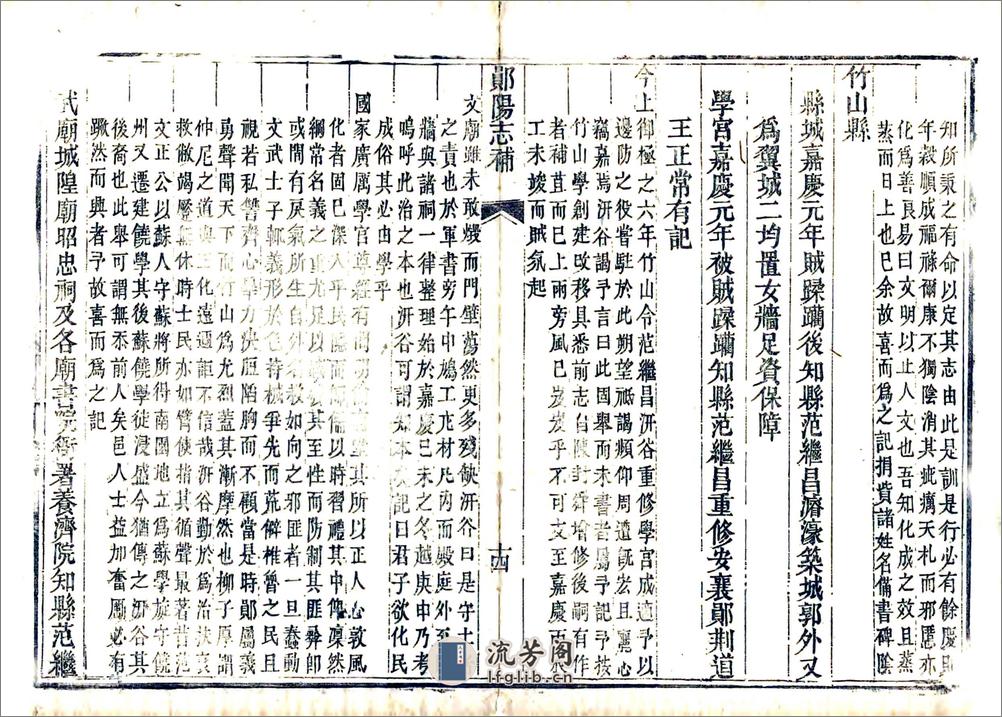 知所秉之有命以定其志由此是訓是行必有餘慶則
年穀順成福祿爾康不獨陰消其疵癘夭札而邪慝亦
化爲善良易曰文明以止人文也吾知化成之效且蒸
蒸而日上也已余故喜而爲之記捐貲諸姓名備書碑陰
竹山縣
縣城嘉慶元年賊蹂躪後知縣范繼昌濬濠築城郭外又
爲翼城二均置女牆足資保障
學宮嘉慶元年被賊蹂躪知縣范繼昌重修安襄鄖荆道
王正常有記
今上御極之六年竹山令范繼昌汧谷重修學宮成適予以
邊防之役嘗駐於此朔望祗謁頫仰周遺旣宏且麗心
竊嘉焉汧谷謁予言曰此固舉而未書者屬予記予按
竹山學創建改移具悉前志自陳封舜增修後嗣有作
者補苴而已上雨旁風已岌岌乎不可支至嘉慶丙辰
工未竣而賊氛起
鄖陽志補
十四
文廟雖未敢燬而門壁蕩然更多殘缺汧谷曰是守土
之責也於軍書旁午中鳩工庀材凡內而殿庭外至
牆與諸祠一律整理始於嘉慶己未之冬越庚申乃考
成俗其必由學乎
鳴呼此治之本也汧谷可謂知本矣記曰君子欲化民
國家廣厲學宮尊莊有間功令
其所以正人心敦風
化者固已深入乎民隱而
以時習禮其中俾凜然
綱常名義之重尤足以
其至性而防制其匪彝卽
或間有戾氣所生自外名教如向之邪匪者一旦蠢動
文武士子輒義形於色荷械爭先而荒僻椎魯之民且
視若私讐齊心擊力決脰陷胸而不顧當是時鄖屬義
勇聲聞天下而竹山爲尤烈蓋其漸摩然也柳子厚謂
仲尼之道與王化遠邇詎不信哉汧谷勤於爲治決
救敝竭蹷無休時士民亦如臂使指其循聲最著昔
文正公以蘇人守蘇將所得南園地立爲蘇學旋守饒
州又遷建饒學其後蘇饒學徒浸盛今猶傳之汧谷其
後裔也此舉可謂無忝前人矣邑人士益加奮勵必有
蹶然而興者予故喜而爲之記
武廟城隍廟昭忠祠及各廟書院衙署養濟院知縣范繼
流芳阁
lfglib.cn